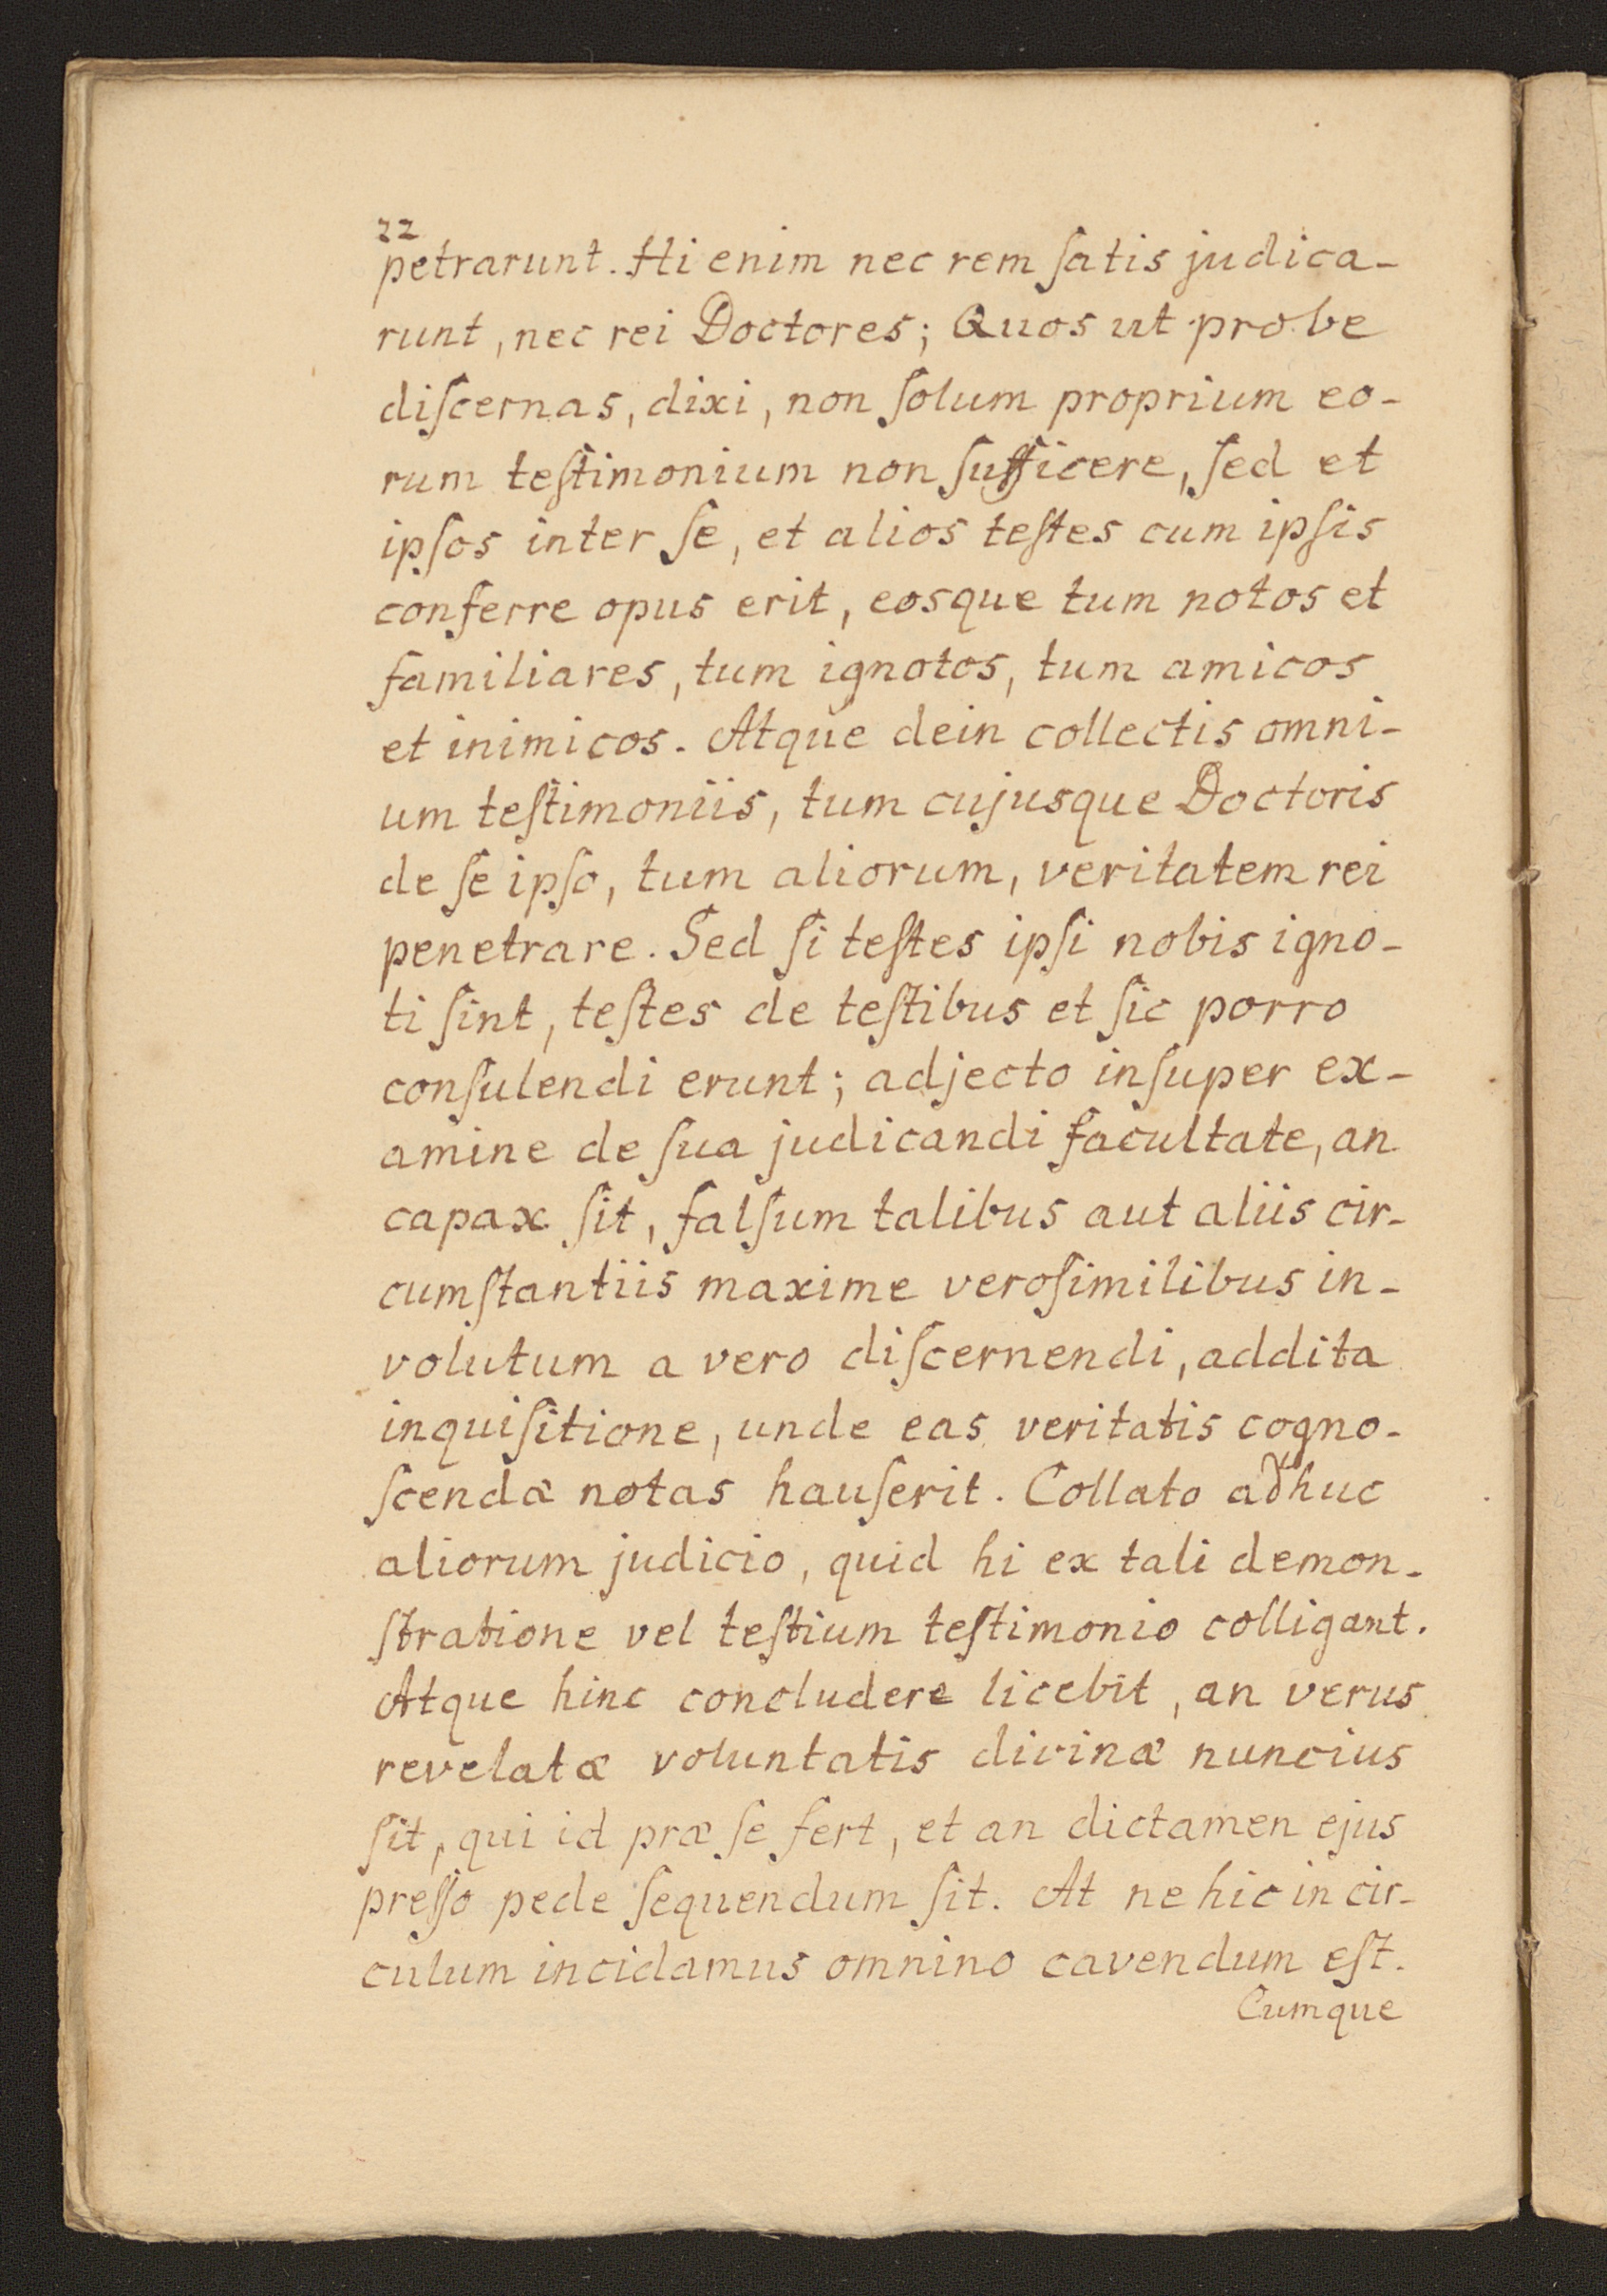 22
petrarunt. Hi enim nec rem ſatis judica-
runt, nec rei Doctores; Quos ut probe
diſcernas, dixi, non ſolum proprium eo-
rum teſtimonium non ſufficere, ſed et
ipſos inter ſe, et alios teſtes cum ipſis
conferre opus erit, eosque tum notos et
familiares, tum ignotos, tum amicos
et inimicos. Atque dein collectis omni-
um teſtimoniis, tum cujusque Doctoris
de ſe ipſo, tum aliorum, veritatem rei
penetrare. Sed ſi teſtes ipſi nobis igno-
ti ſint, teſtes de teſtibus et ſic porro
conſulendi erunt; adjecto inſuper ex-
amine de ſua judicandi facultate, an
capax ſit, falſum talibus aut aliis cir-
cumſtantiis maxime veroſimilibus in-
volutum a vero diſcernendi, addita
inquiſitione, unde eas veritatis cogno-
ſcendæ notas hauſerit. Collato adhuc
aliorum judicio, quid hi ex tali demon-
ſtratione vel teſtium teſtimonio colligant.
Atque hinc concludere licebit, an verus
revelatæ voluntatis divinæ nuncius
ſit, qui id præ ſe fert, et an dictamen ejus
preſſo pede ſequendum ſit. At ne hic in cir-
culum incidamus omnino cavendum eſt.
Cumque